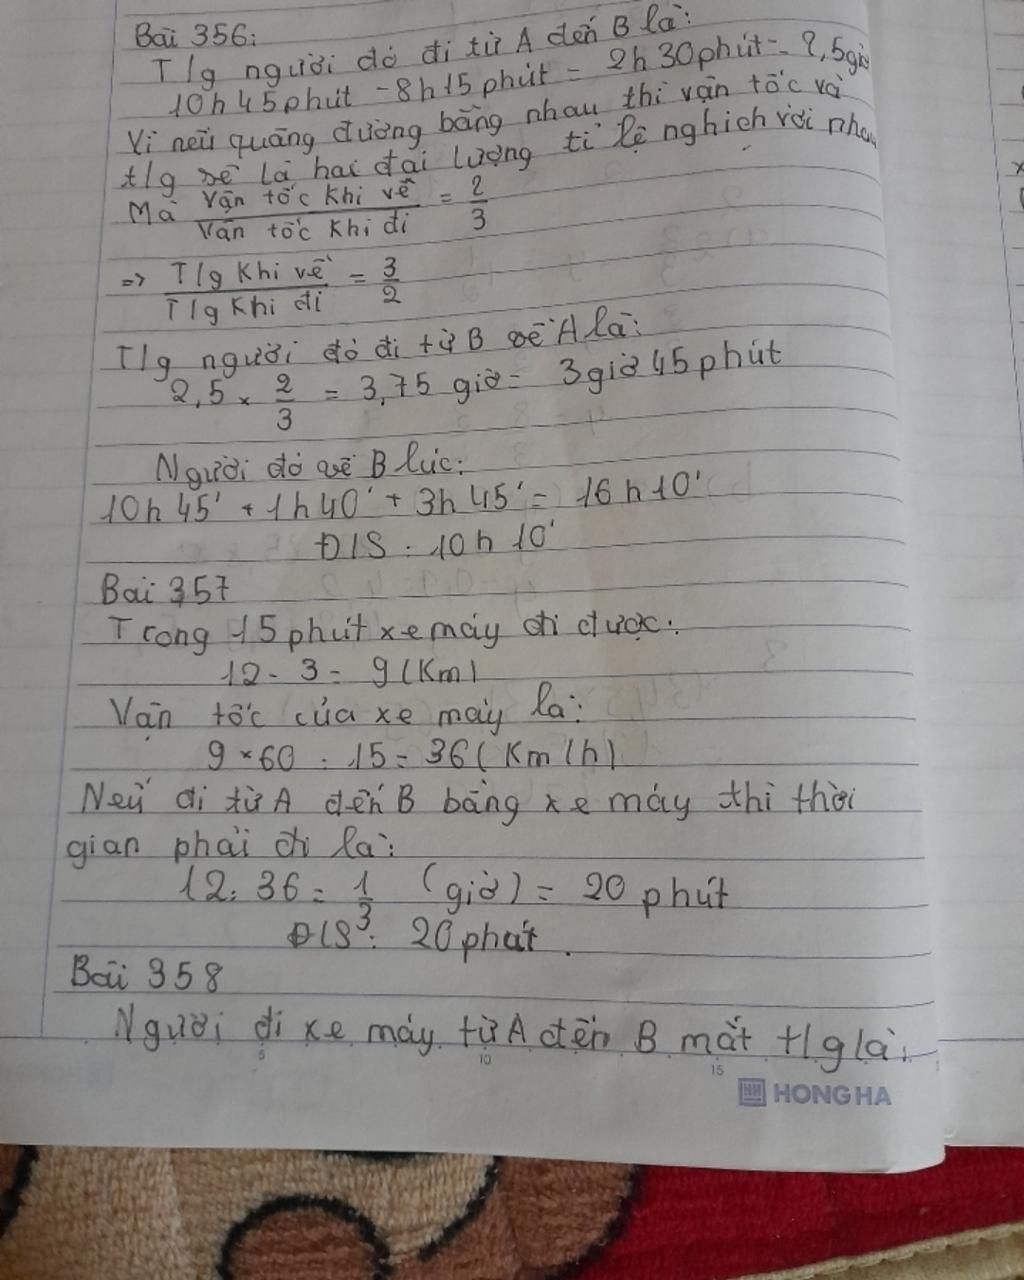 Bài 356:
T/g người đó đi từ A đến B là:
10h 45phút - 8h15phút = 2h 30phút = 2,5giờ
Vì nếu quãng đường bằng nhau thì vận tốc và
t/g sẽ là hai đại lượng tỉ lệ nghịch với nhau
Mà Vận tốc khi về / Vận tốc khi đi = 2/3
=> T/g khi về / T/g khi đi = 3/2
T/g người đó đi từ B về A là:
2,5 × 2/3 = 3,75 giờ = 3giờ 45phút
Người đó về B lúc:
10h 45' + 1h40' + 3h 45' = 16h 10'
Đ/S: 10h 10'
Bài 357
Trong 15phút xe máy đi được:
12 - 3 = 9 (Km)
Vận tốc của xe máy là:
9 × 60 : 15 = 36 (Km/h)
Nếu đi từ A đến B bằng xe máy thì thời
gian phải đi là:
12: 36 = 1/3 (giờ) = 20 phút
Đ/S: 20phút.
Bài 358
Người đi xe máy từ A đến B mất t/g là:
5 10 15
HONG HA